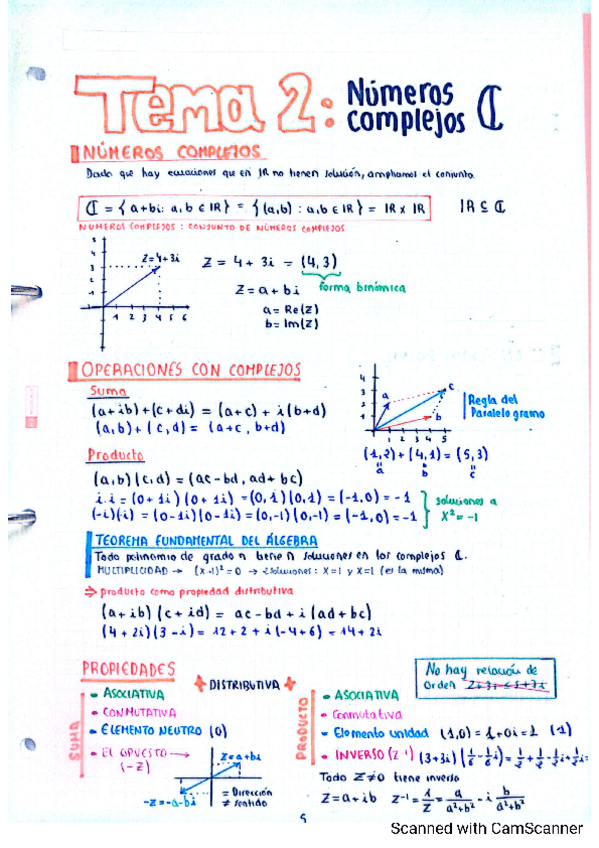 Tema 2: Números complejos ℂ
NÚMEROS COMPLEJOS
Dado que hay ecuaciones que en IR no tienen solución, ampliamos el conjunto
ℂ = { a+bi : a, b ∈ IR } = { (a,b) : a, b ∈ IR } = IR x IR
IR ⊆ ℂ
NUMEROS COMPLEJOS : CONJUNTO DE NÚMEROS COMPLEJOS
Z=4+3i
Z = 4 + 3i = (4,3)
Z = a + bi
forma binómica
a = Re(Z)
b = Im(Z)
1 2 3 4 5 6
OPERACIONES CON COMPLEJOS
Suma
(a+ib)+(c+di) = (a+c) + i(b+d)
(a,b)+(c,d) = (a+c, b+d)
a
b
c
1 2 3 4 5
Regla del
Paralelogramo
(1,2)+(4,1)=(5,3)
a b c
Producto
(a,b)(c,d) = (ac-bd, ad+bc)
i·i = (0+1i)(0+1i) = (0,1)(0,1) = (-1,0) = -1
(-i)(i) = (0-1i)(0-1i) = (0,-1)(0,-1) = (-1,0) = -1
soluciones a
X²=-1
TEOREMA FUNDAMENTAL DEL ÁLGEBRA
Todo polinomio de grado n tiene n soluciones en los complejos ℂ.
MULTIPLICIDAD → (x-1)² = 0 → 2 soluciones : X=1 y X=1 (es la misma)
⇒ producto como propiedad distributiva
(a+ib)(c+id) = ac-bd+i(ad+bc)
(4+2i)(3-i) = 12+2+i(-4+6) = 14+2i
PROPIEDADES
No hay relación de
orden 2+3i ≤ 5+7i
+ DISTRIBUTIVA +
SUMA
- ASOCIATIVA
- CONMUTATIVA
- ELEMENTO NEUTRO (0)
- EL OPUESTO →
(-Z)
Z=a+bi
-Z=-a-bi
= Dirección
≠ sentido
PRODUCTO
- ASOCIATIVA
- Conmutativa
- Elemento unidad (1,0)=1+0i=1 (1)
- INVERSO (Z⁻¹) (3+3i)(1/6-1/6i)=1/2+1/2-1/2i+1/2i=
Todo Z≠0 tiene inverso
Z=a+ib Z⁻¹=1/Z=a/(a²+b²)-i b/(a²+b²)
5
Scanned with CamScanner